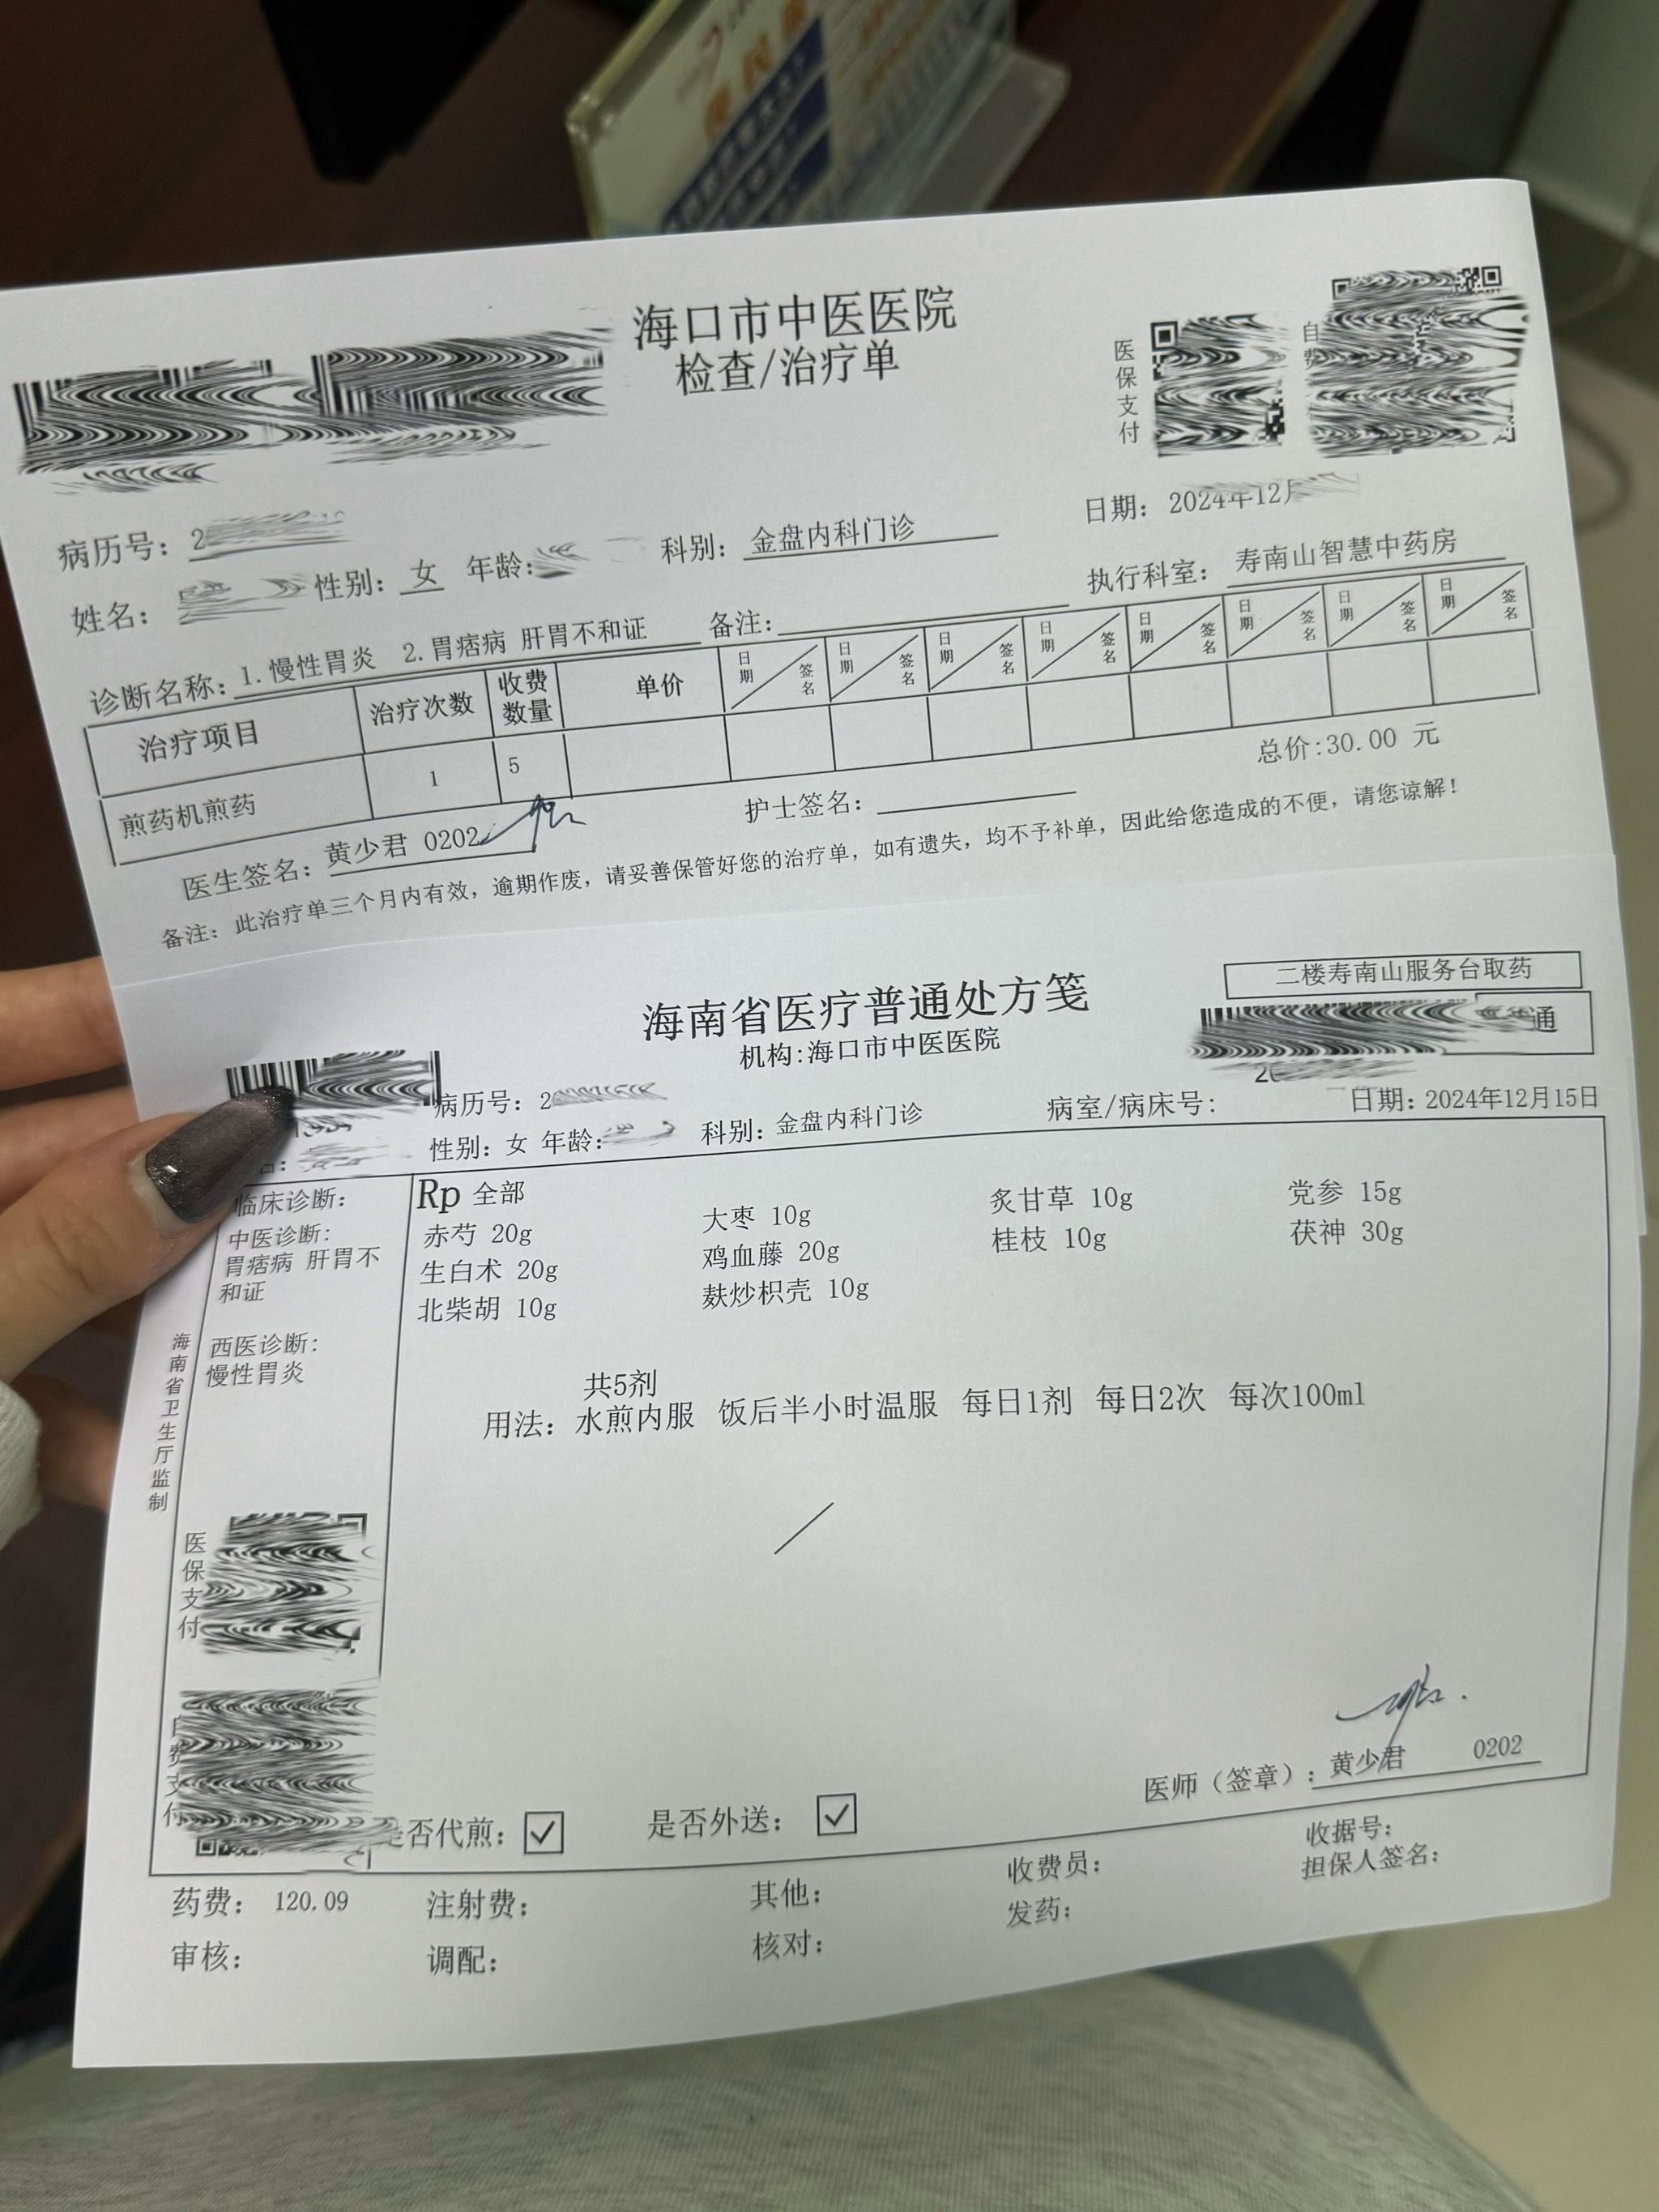 海口市中医医院
检查/治疗单
医保支付
自费
病历号：2
日期：2024年12月
姓名： 性别：女 年龄： 科别：金盘内科门诊
执行科室：寿南山智慧中药房
诊断名称：1.慢性胃炎 2.胃痞病 肝胃不和证 备注：
治疗项目 治疗次数 收费数量 单价 日期 签名 日期 签名 日期 签名 日期 签名 日期 签名 日期 签名 日期 签名 日期 签名
煎药机煎药 1 5
总价:30.00 元
医生签名：黄少君 0202 护士签名：
备注：此治疗单三个月内有效，逾期作废，请妥善保管好您的治疗单，如有遗失，均不予补单，因此给您造成的不便，请您谅解！
二楼寿南山服务台取药
海南省医疗普通处方笺
通
机构:海口市中医医院
病历号：2 病室/病床号: 日期：2024年12月15日
性别：女 年龄： 科别：金盘内科门诊
临床诊断：
中医诊断：
胃痞病 肝胃不
和证
西医诊断：
慢性胃炎
海南省卫生厅监制
医保支付
Rp 全部
赤芍 20g 大枣 10g 炙甘草 10g 党参 15g
生白术 20g 鸡血藤 20g 桂枝 10g 茯神 30g
北柴胡 10g 麸炒枳壳 10g
共5剂
用法：水煎内服 饭后半小时温服 每日1剂 每日2次 每次100ml
医师（签章）：黄少君 0202
是否代煎：☑ 是否外送：☑
药费：120.09 注射费： 其他： 收费员： 收据号：
担保人签名：
审核： 调配： 核对： 发药：